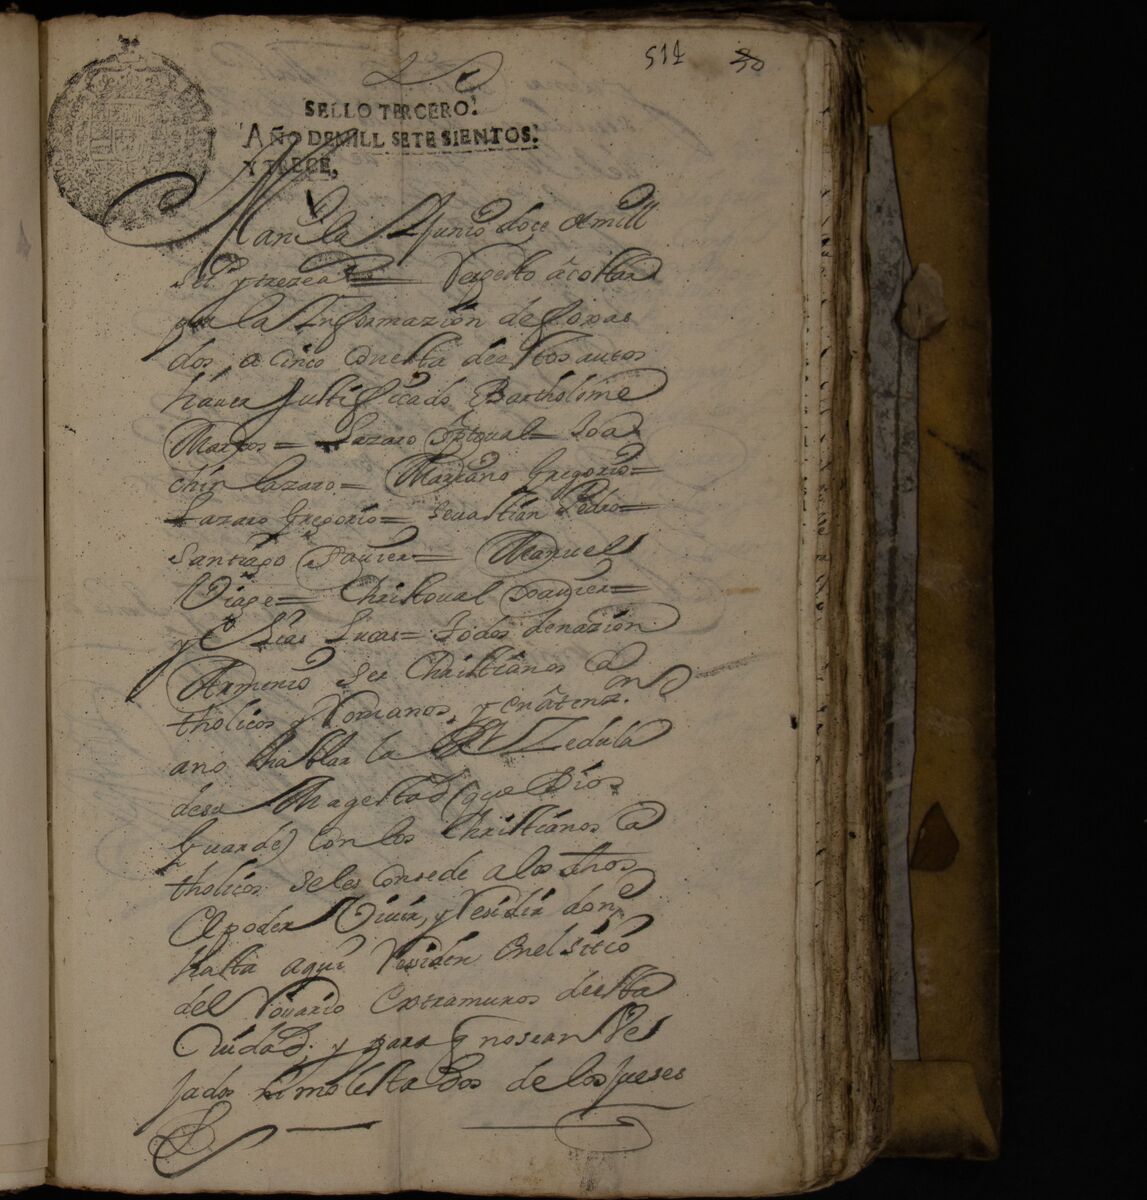 514 30
SELLO TERCERO.
AÑO DEMILL SETE SIENTOS.
Y TRECE,
Manila y Junio doce de mill
set.s y trezea = Respecto a costar
que la Informazion de foxas
dos, a cinco conesta destos autos
hauer Justificado Bartholome
Marcos = Lazaro Pasqual = Joa
chin lazaro = Mariano Gregorio =
Lazaro Gregorio = Seuastian Pedro =
Santiago Xauier = Manuel
Diage = Christoual Xauier =
y Elias Lucas = todos de nazion
Armenio ser Christianos Ca
tholicos y Romanos, y en aten.on
a no hablar la Rl Zedula
desu Magestad (que Dios
Guarde) con los Christianos Ca
tholicos: seles consede a los dhos
el poder Viuir, y Residir don.e
hasta aqui Residen en el sitio
del Rosario extramuros desta
Ciudad; y para q no sean Ve
jados ni molestados de los Jueses